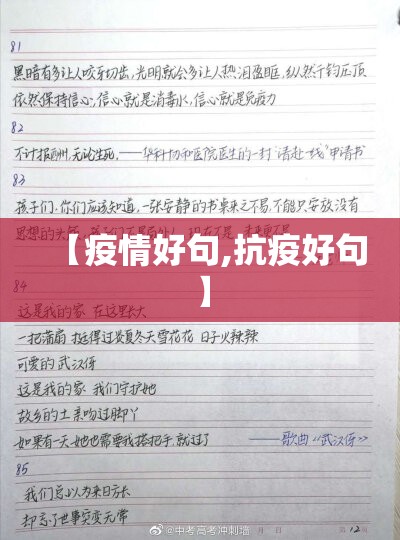 81
黑暗有多让人咬牙切齿,光明就会多让人热泪盈眶,纵然千钧压顶
依然保持信心,信心就是消毒水,信心就是免疫力
82
不计报酬,无论生死。——华科协和医院医生的一封“请赴一线”申请书
83
孩子们,你们应该知道,一张安静的书桌来之不易,不能只安放没有
思想的头
【疫情好句,抗疫好句
】
84
这是我的家 在这里长大
一把蒲扇 挺得过炎夏冬天雪花花 日子火辣辣
可爱的武汉伢
这是我的家 我们守护她
故乡的土 亲吻过脚丫
如果有一天她也需要我搭把手,就过了 ——歌曲《武汉伢》
85
我们总以为来日方长
却忘了世事突变无常
@中考高考冲刺墙
月 日
第12页